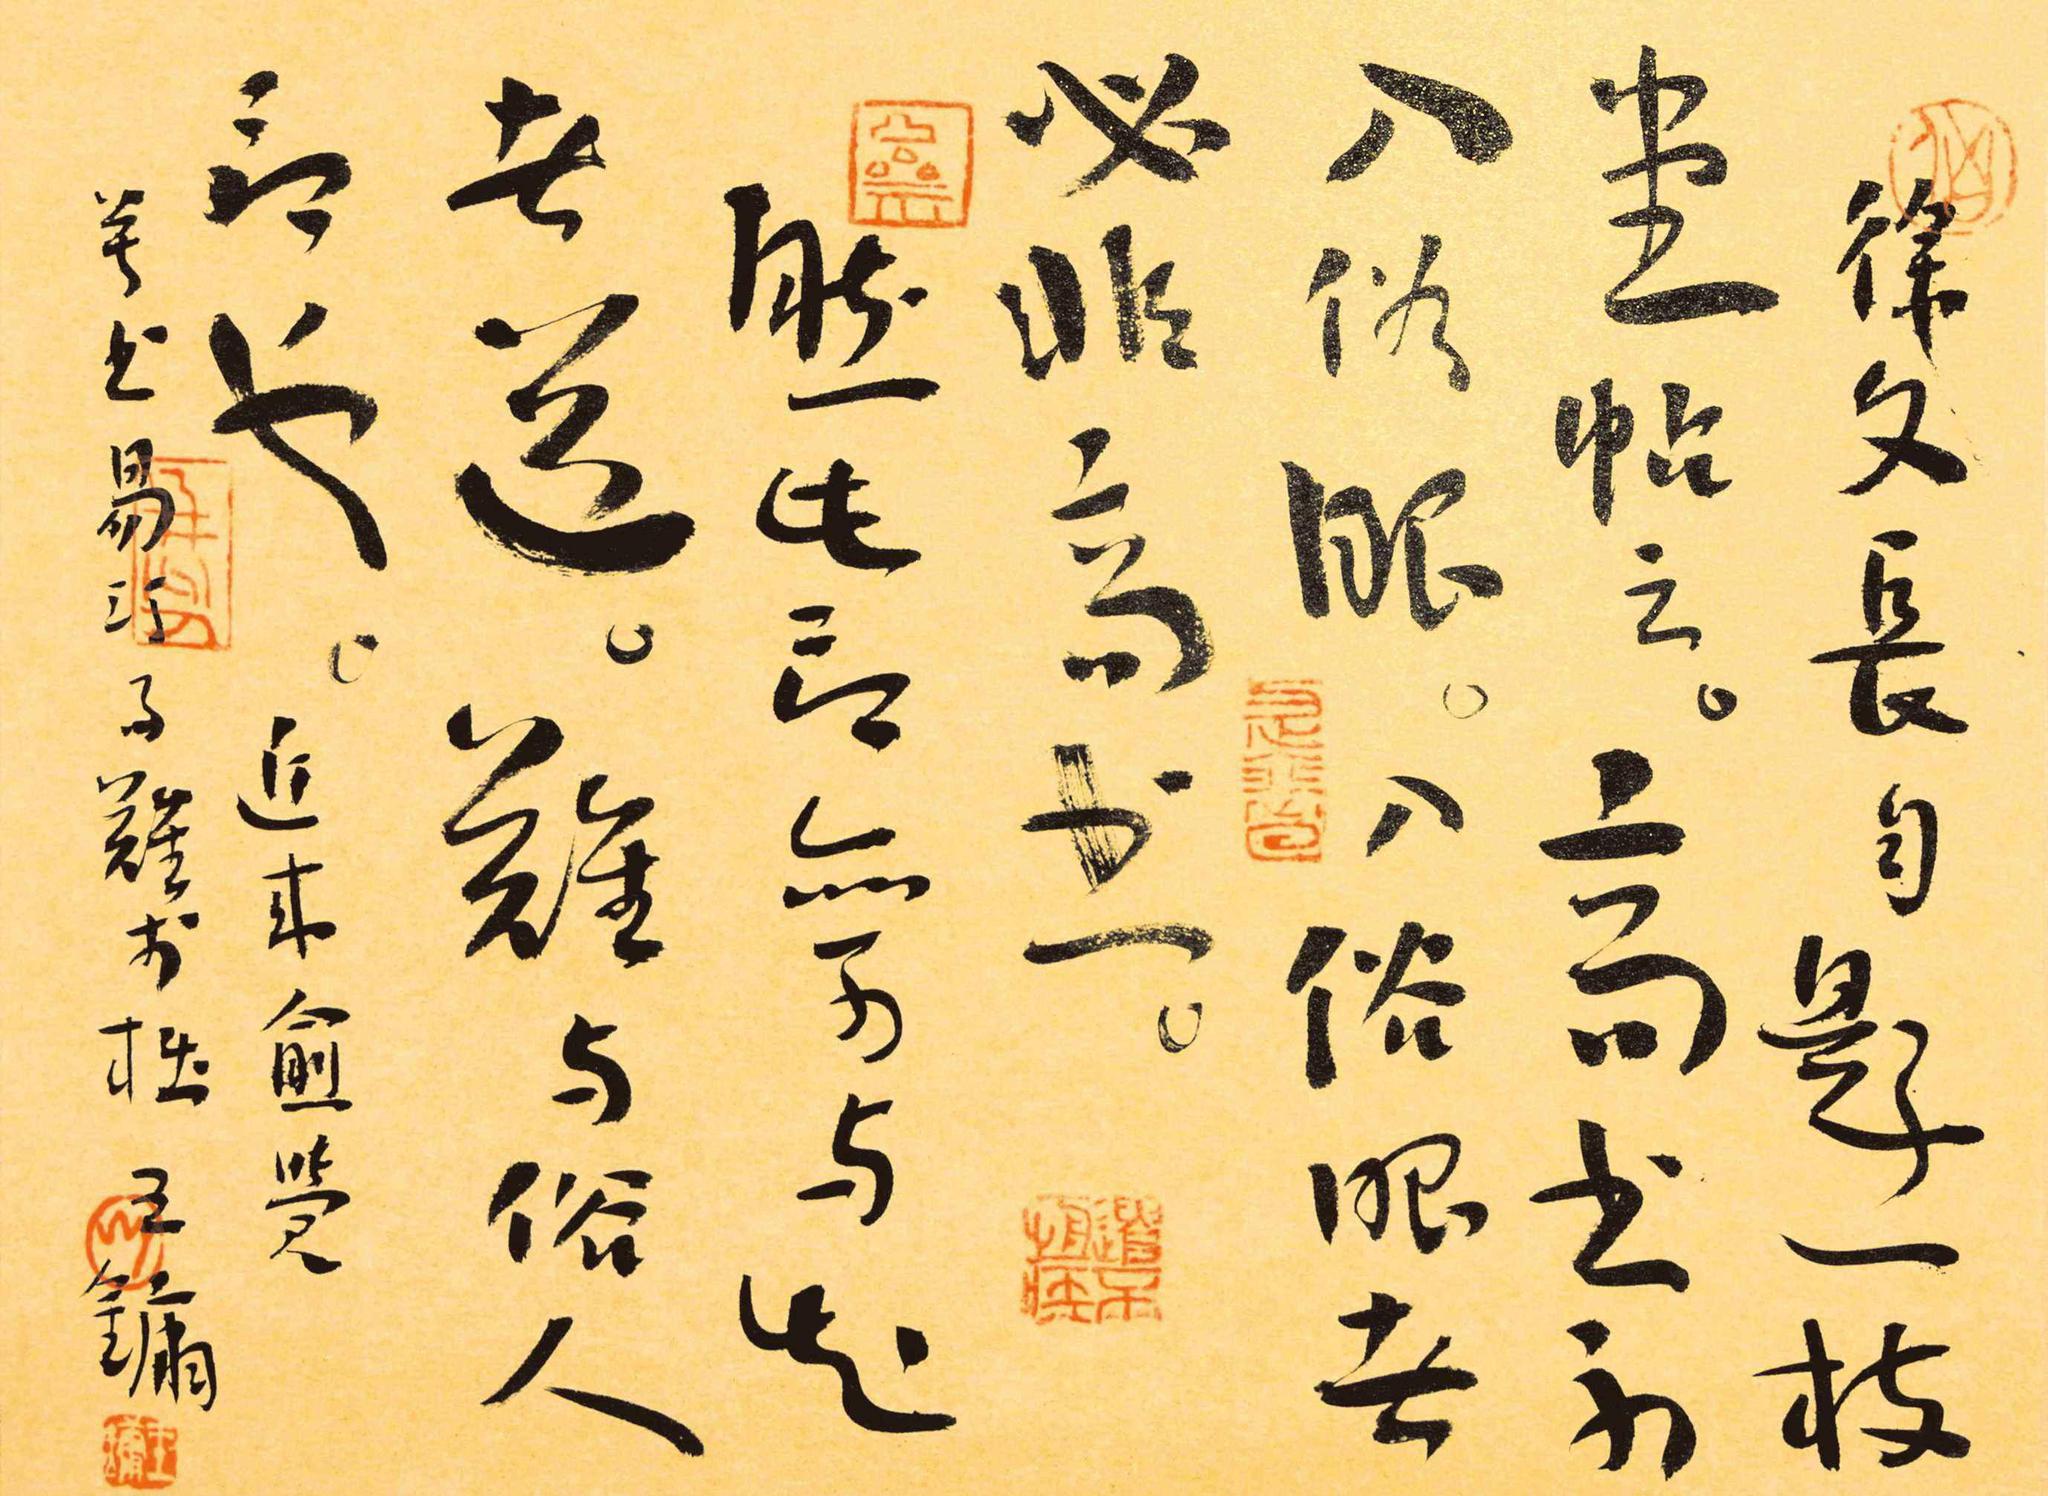 徐文長自題一枝
堂帖云。高書不
入俗眼。入俗眼者
必非高書。
然此言可與知
者道。難與俗人
言也。近來愈覺
草書易巧而難於拙 王鏞